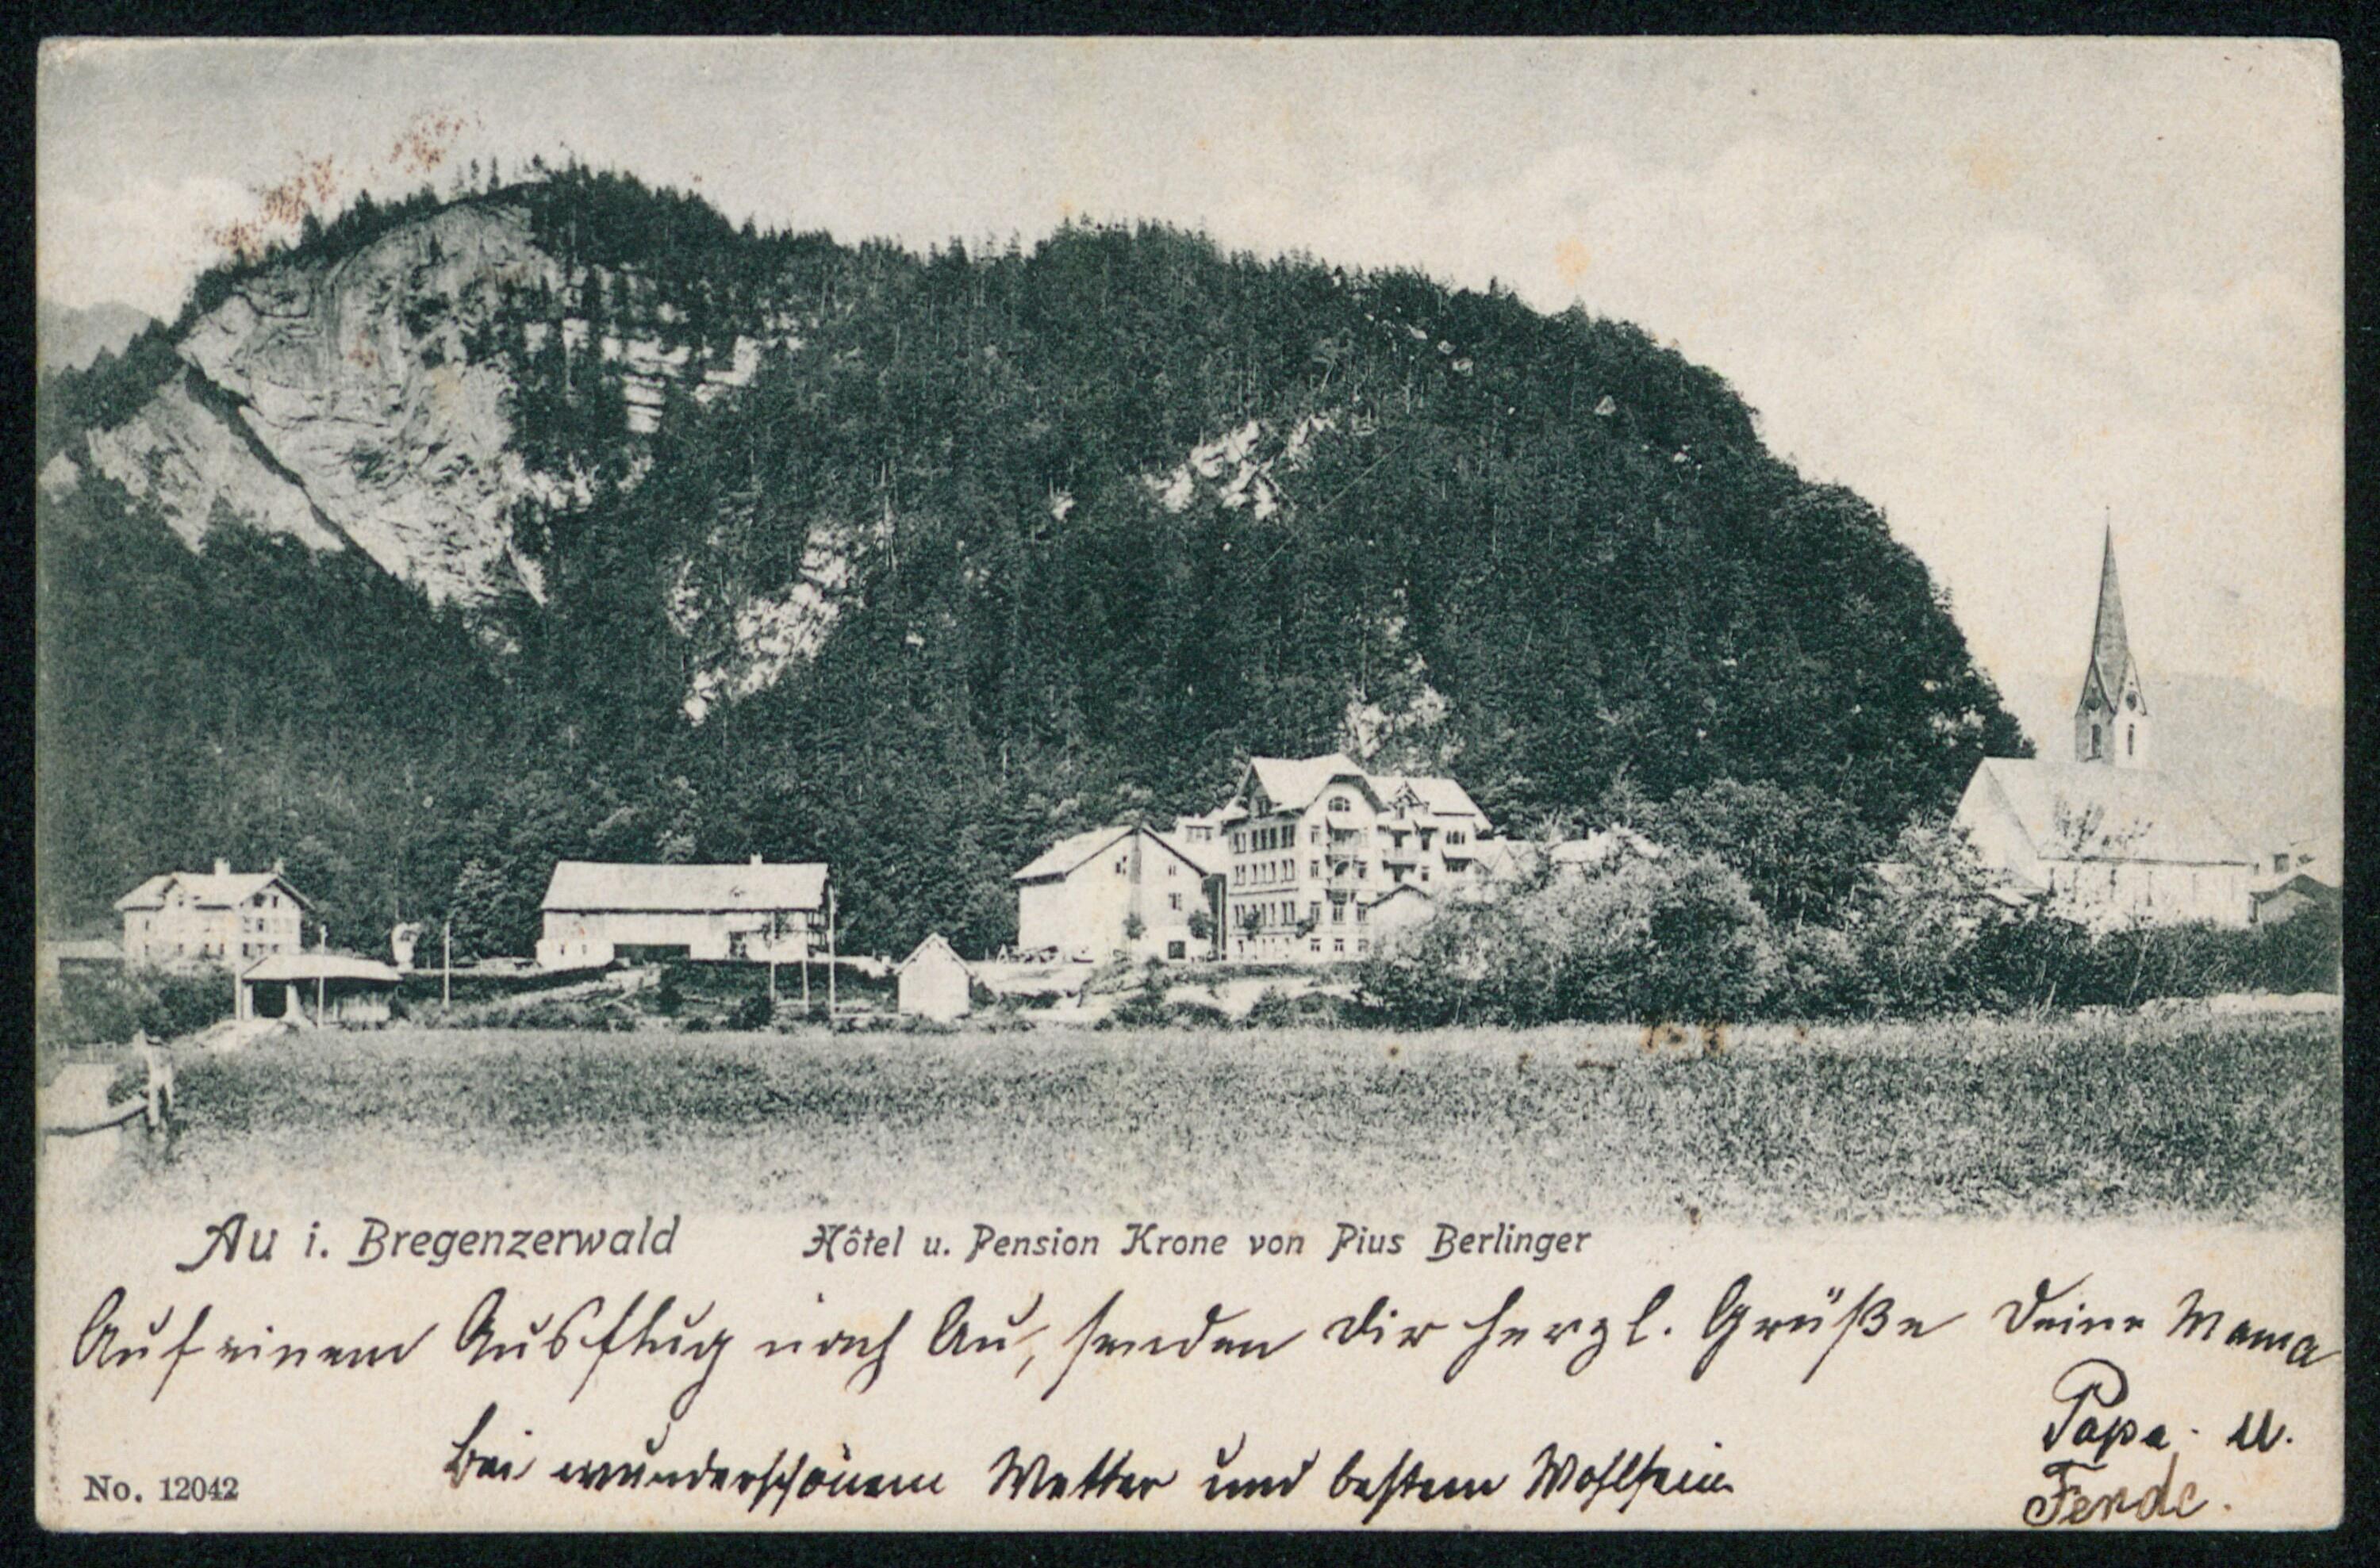 Au i. Bregenzerwald Hôtel u. Pension Krone von Pius Berlinger
Auf einem Ausflug nach Au, senden Dir herzl. Grüße Deine Mama
Papa u.
Bei wunderschönem Wetter und bestem Wohlsein
Ferde.
No. 12042